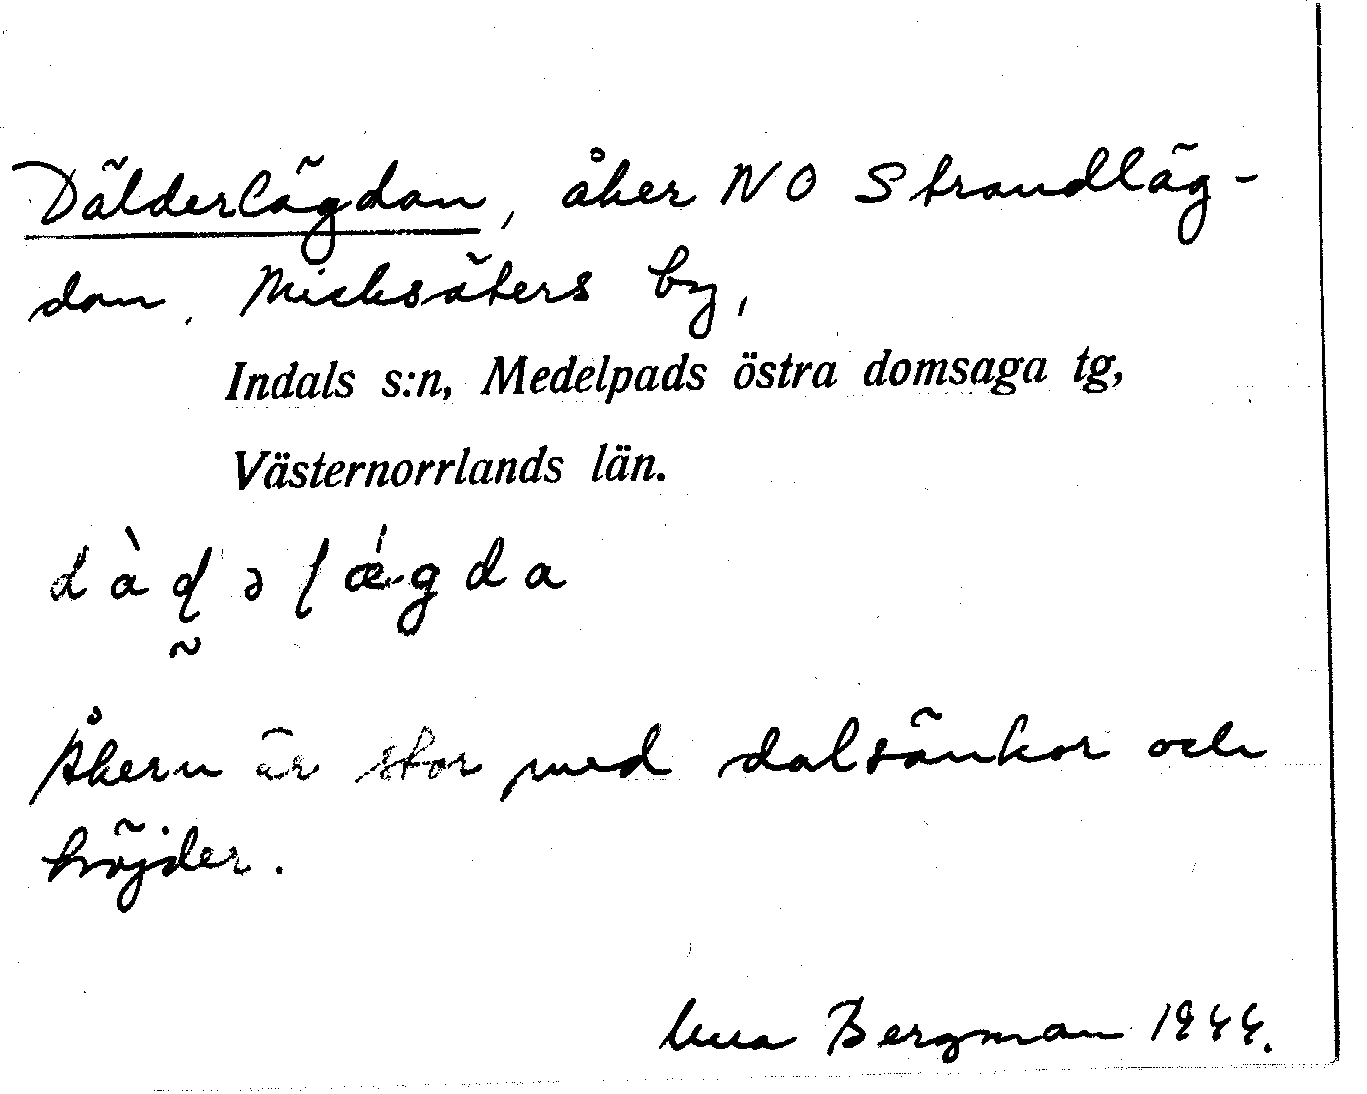 Dälderlägdan, åker NO Strandläg-
dan. Micksäters by,
Indals s:n, Medelpads östra domsaga tg,
Västernorrlands län.
Åkern är stor med dalsänkor och
höjder.
Bergman 1944.